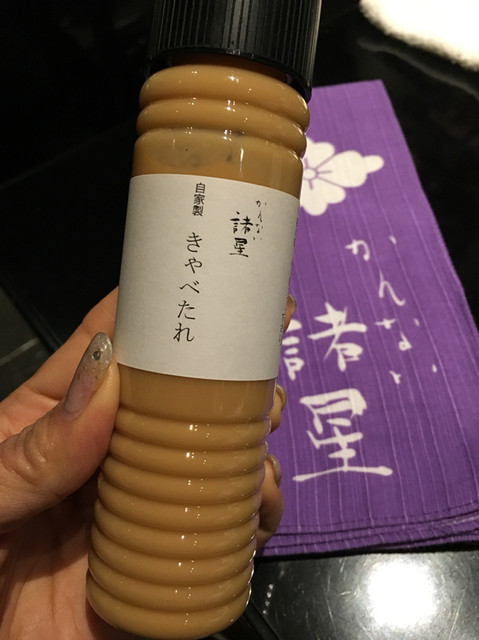 かんない
諸星
自家製
きゃべたれ
かんない
諸星